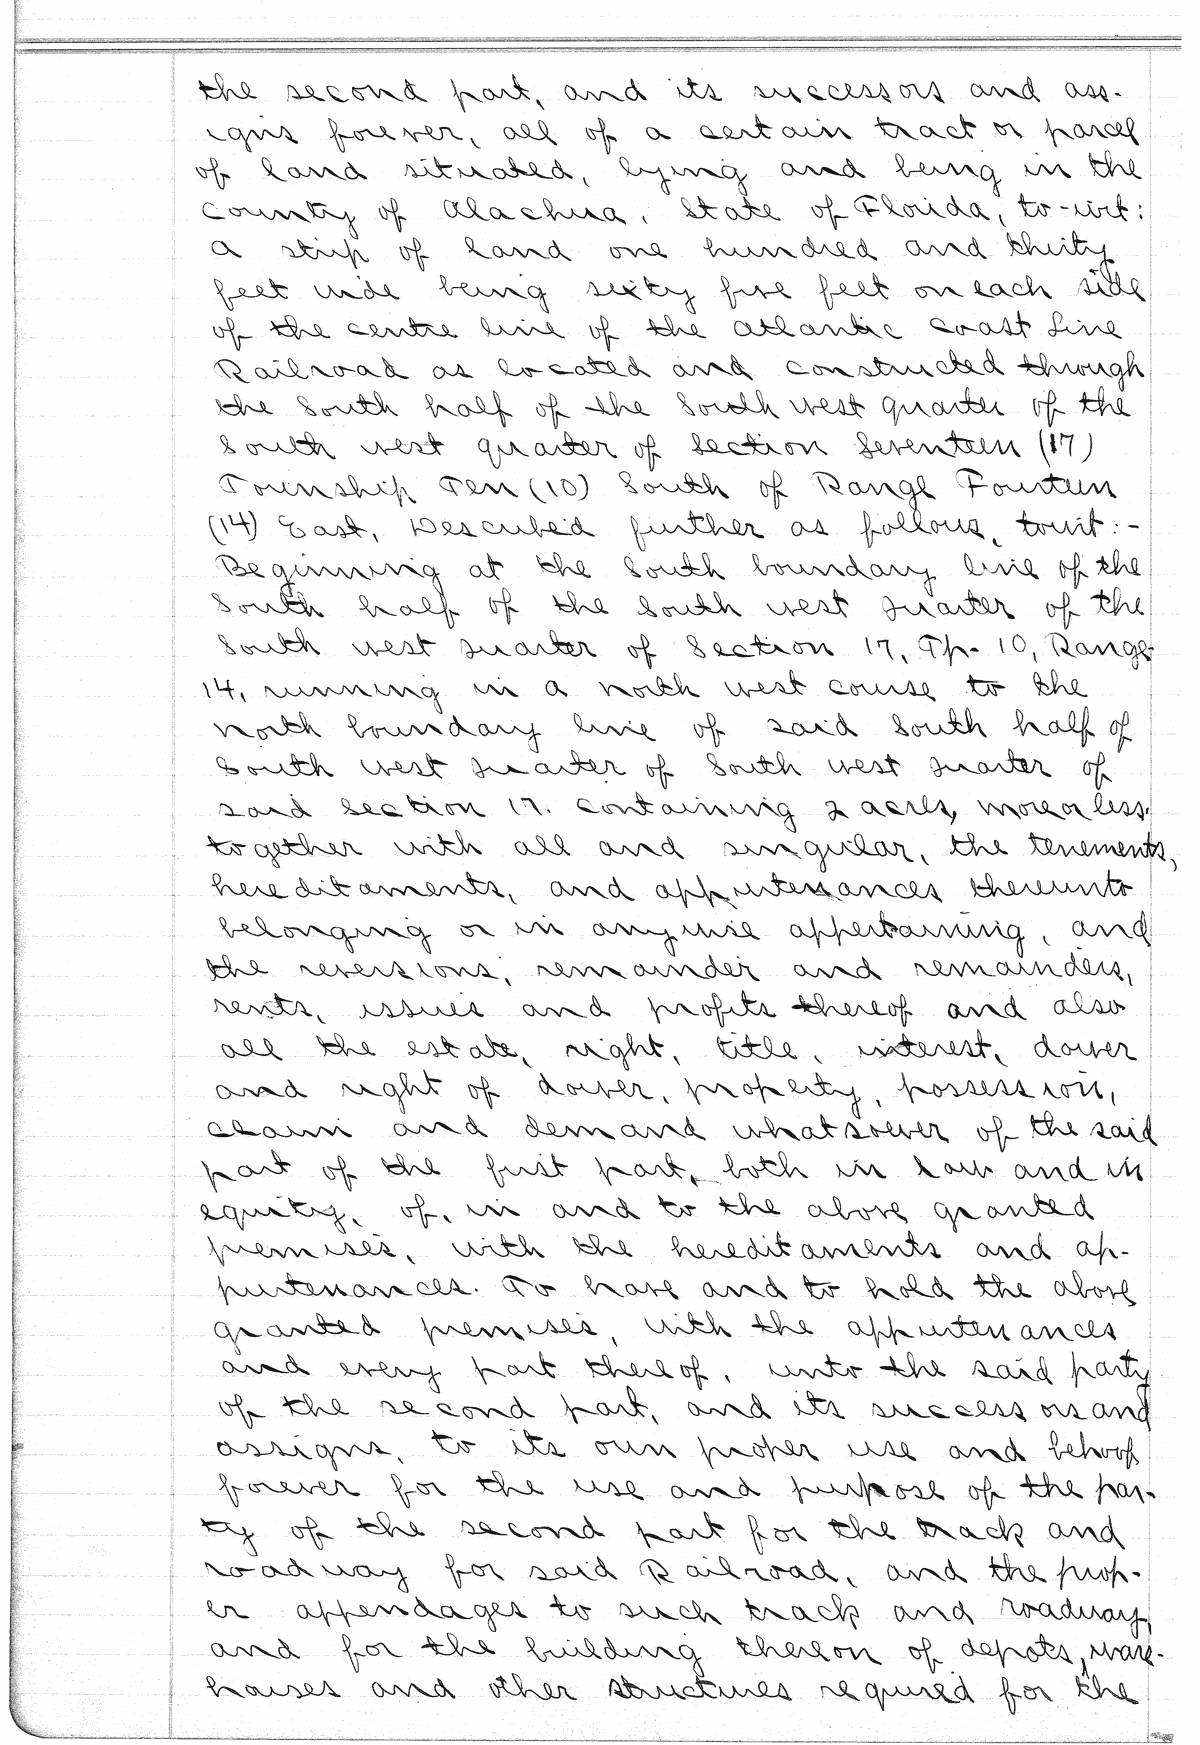 the second part, and its successors and ass-
igns forever, all of a certain tract or parcel
of land situated, lying and being in the
County of Alachua, State of Florida, to-wit:
a strip of land one hundred and thirty
feet wide being sixty five feet on each side
of the centre line of the Atlantic Coast Line
Railroad as located and constructed through
the South half of the South west quarter of the
South west quarter of Section Seventeen (17)
Township Ten (10) South of Range Fourteen
(14) East, Described further as follows, towit:-
Beginning at the South boundary line of the
South half of the South west quarter of the
South west quarter of Section 17, Tp. 10, Range
14, running in a north west course to the
north boundary line of said South half of
South west quarter of South west quarter of
said Section 17. containing 2 acres, more or less.
together with all and singular, the tenements,
hereditaments, and appurtenances thereunto
belonging or in anywise appertaining, and
the reversions, remainder and remainders,
rents, issues and profits thereof and also
all the estate, right, title, interest, dower
and right of dower, property, possession,
claim and demand whatsoever of the said
part of the first part, both in law and in
equity, of, in and to the above granted
premises, with the hereditaments and ap-
purtenances. To have and to hold the above
granted premises, with the appurtenances
and every part thereof, unto the said party
of the second part, and its successors and
assigns, to its own proper use and behoof
forever for the use and purpose of the par-
ty of the second part for the track and
roadway for said Railroad, and the prop-
er appendages to such track and roadway,
and for the building thereon of depots, ware-
houses and other structures required for the